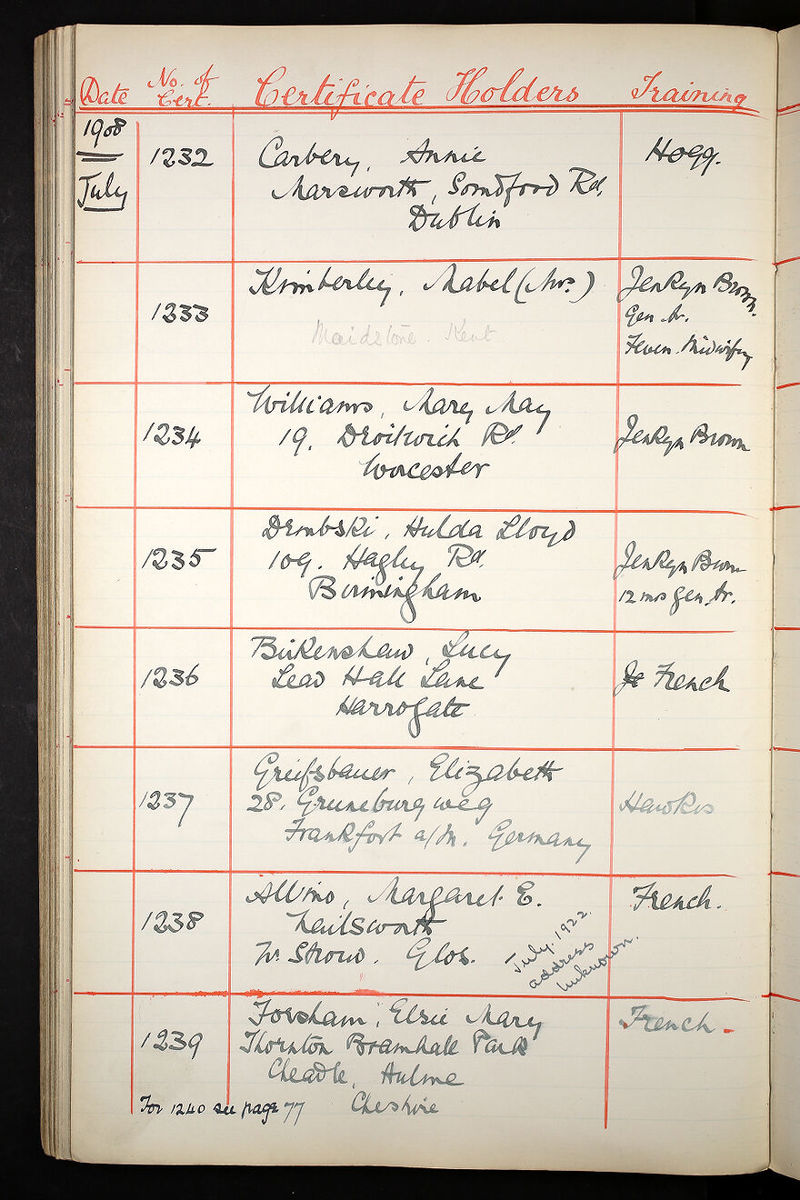 Date No. of Cert. Certificate Holders Training
1908
July
1232 Carbery, Annie Hogg.
Marsworth, Sandford Rd.
Dublin
1233 Kimberley, Mabel (Mrs.) Jenkyn Brown.
Gen. tr.
Maidstone. Kent
Fever. Midwifry
1234 Williams, Mary May Jenkyn Brown
19. Droitwich Rd.
Worcester
1235 Dembski, Hulda Lloyd
109. Hagley Rd. Jenkyn Brown
Birmingham 12 mos gen. tr.
1236 Birkenshaw, Lucy
Lead Hall Lane Je French
Harrogate
1237 Greifsbauer, Elizabeth
28. Gruneburgweg Hawkes
Frankfort a/M. Germany
1238 Allvino, Margaret. E. French.
Nailsworth
Nr. Stroud. Glos.
July. 1922.
address
unknown.
1239 Forsham, Elsie Mary French
Thornton Bramhall Park
Cheadle, Hulme
Cheshire
For 1240 see page 77